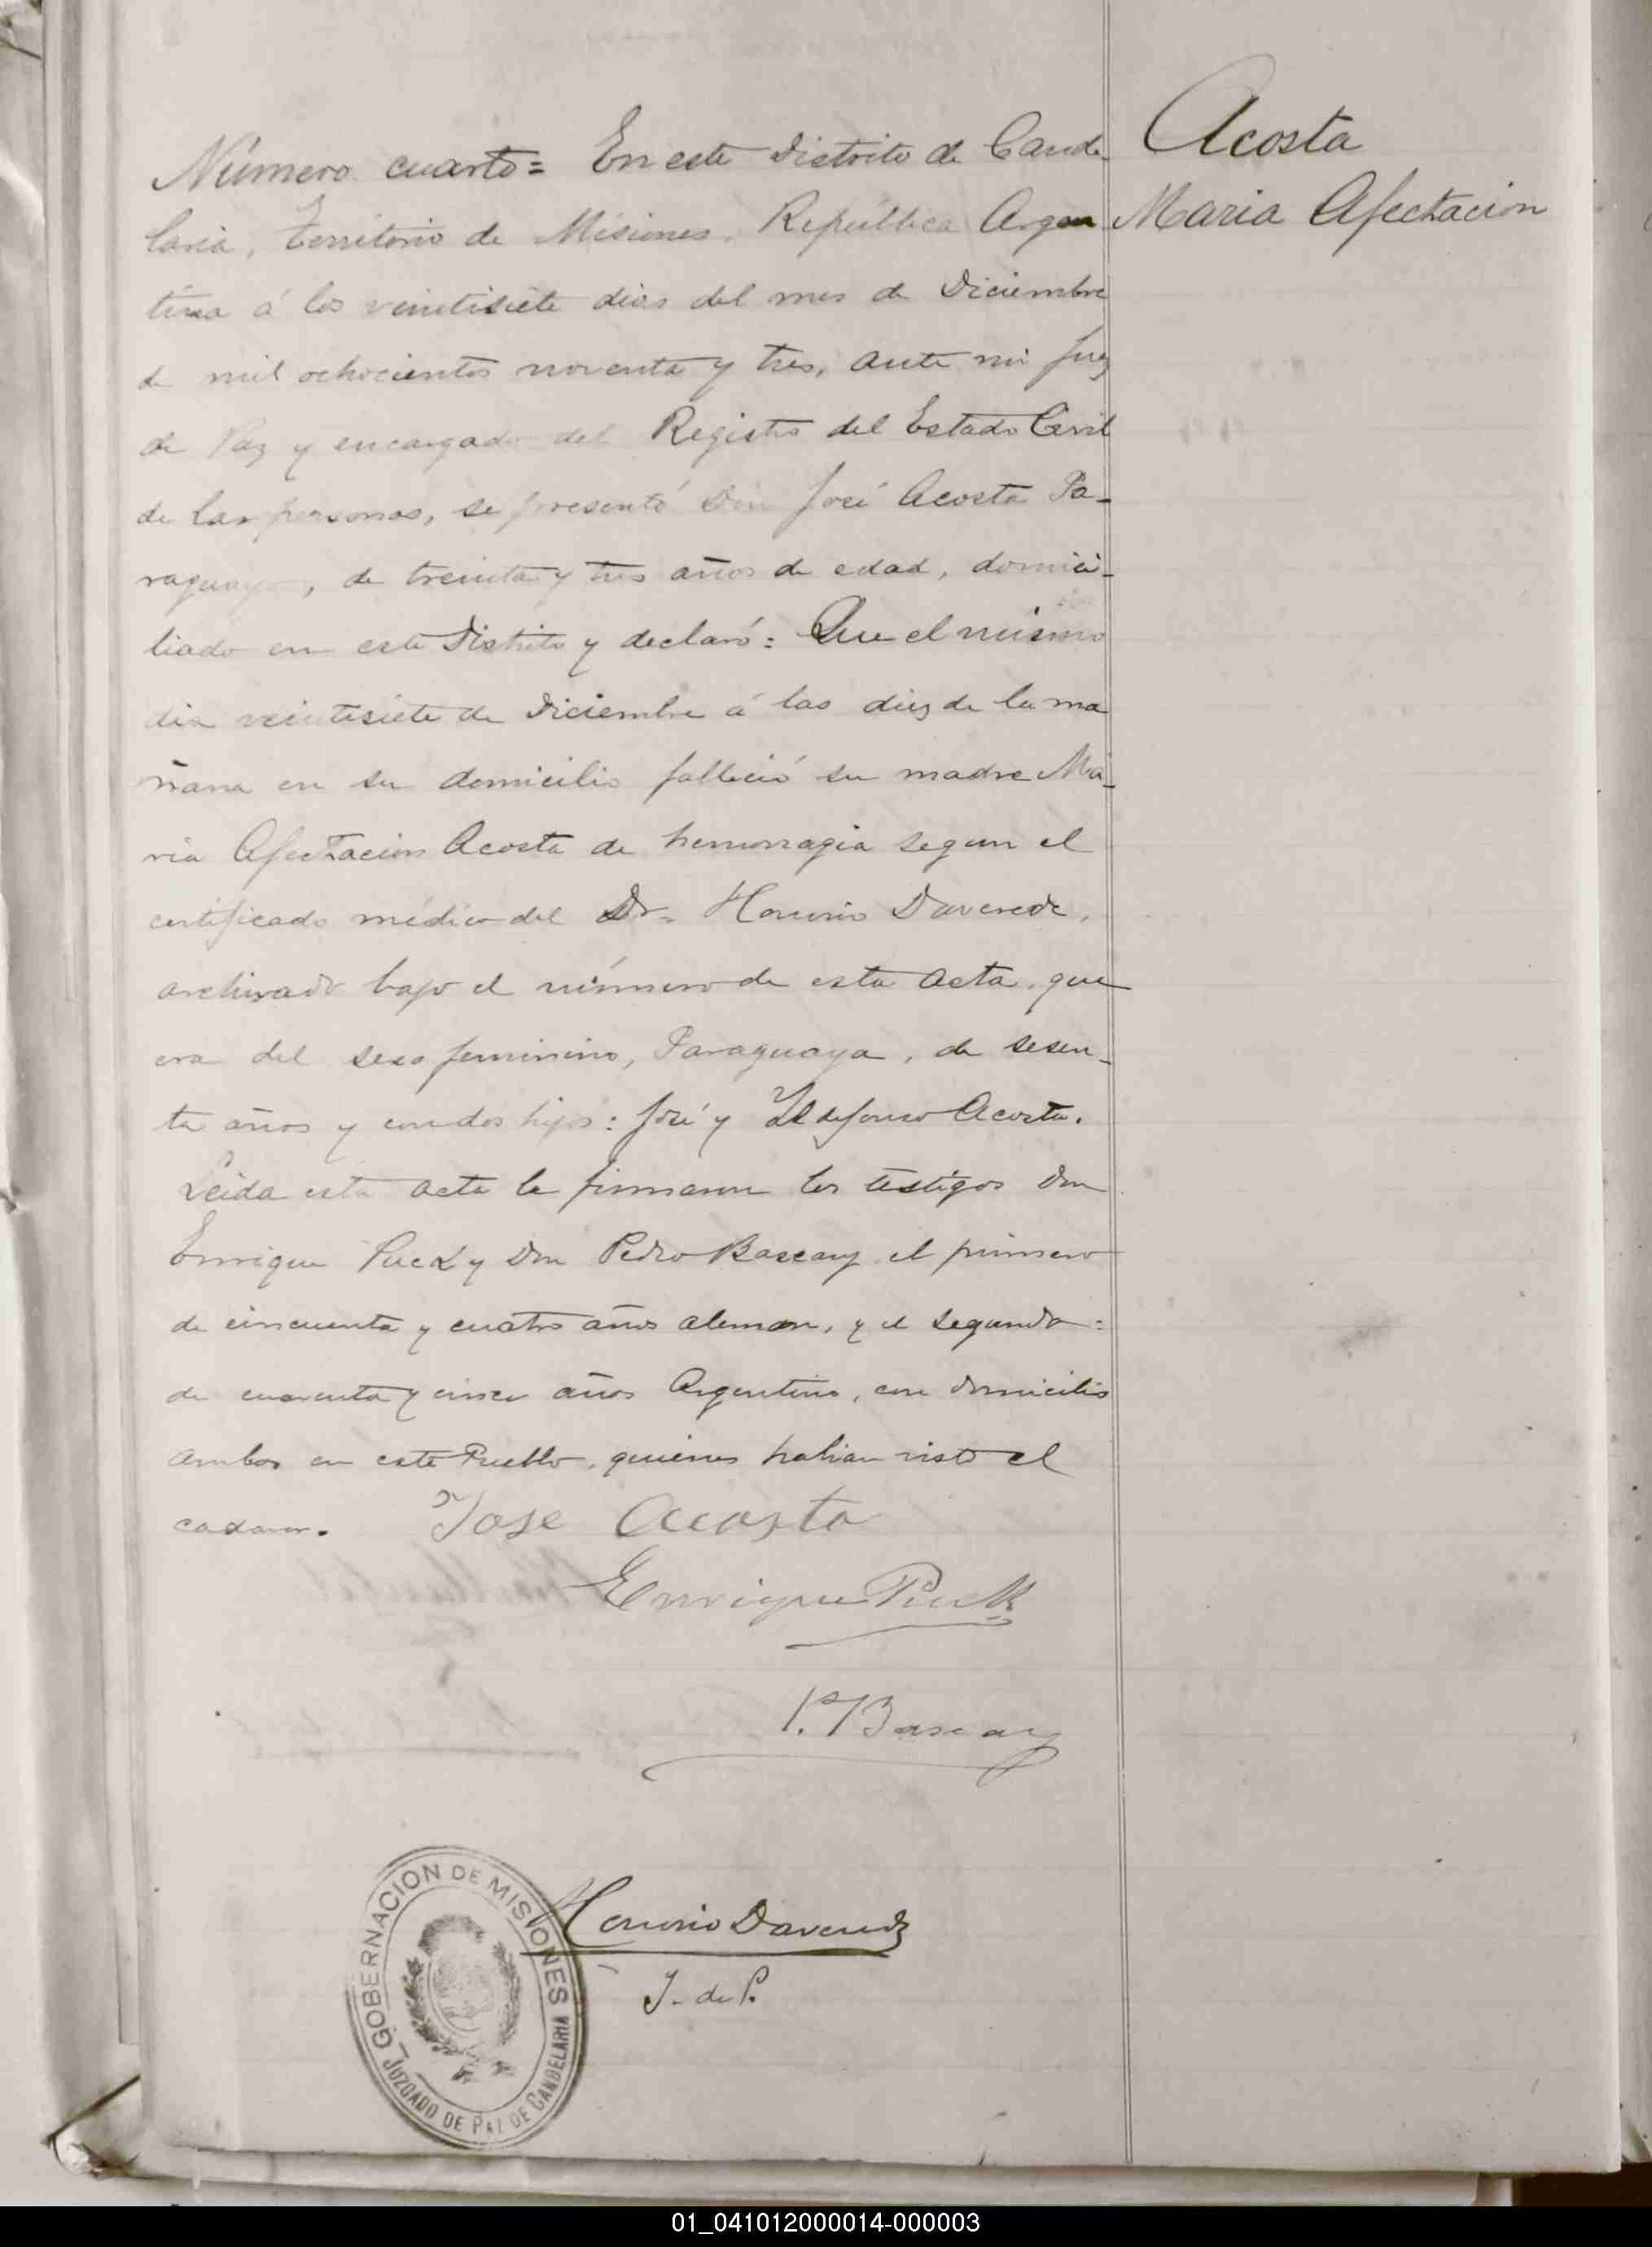 Acosta
Maria Afectacion
Número cuarto= En este Distrito de Cande-
laria, Territorio de Misiones, República Argen
tina á los veintisiete dias del mes de Diciembre
de mil ochocientos noventa y tres, ante mi Juez
de Paz y encargado del Registro del Estado Civil
de las personas, se presentó Don José Acosta Pa-
raguayo, de treinta y tres años de edad, domici-
liado en este Distrito y declaró: Que el mismo
dia veintisiete de Diciembre á las diez de la ma
ñana en su domicilio falleció su madre Ma-
ria Afectacion Acosta de hemorragia segun el
certificado médico del Dr. Honorio Daverede,
archivado bajo el número de esta acta, que
era del sexo feminino, Paraguaya, de sesen-
ta años y con dos hijos: José y Ildefonso Acosta.
Leida esta acta la firmaron los testigos Don
Enrique Puck y Don Pedro Bascary, el primero
de cincuenta y cuatro años aleman, y el segundo:
de cuarenta y cinco años Argentino, con domicilio
ambos en este Pueblo, quienes habian visto el
cadaver. Jose Acosta
Enrique Puck
P. Bascary
Honorio Daverede
J. de P.
GOBERNACION DE MISIONES
JUZGADO DE PAZ DE CANDELARIA
01_041012000014-000003